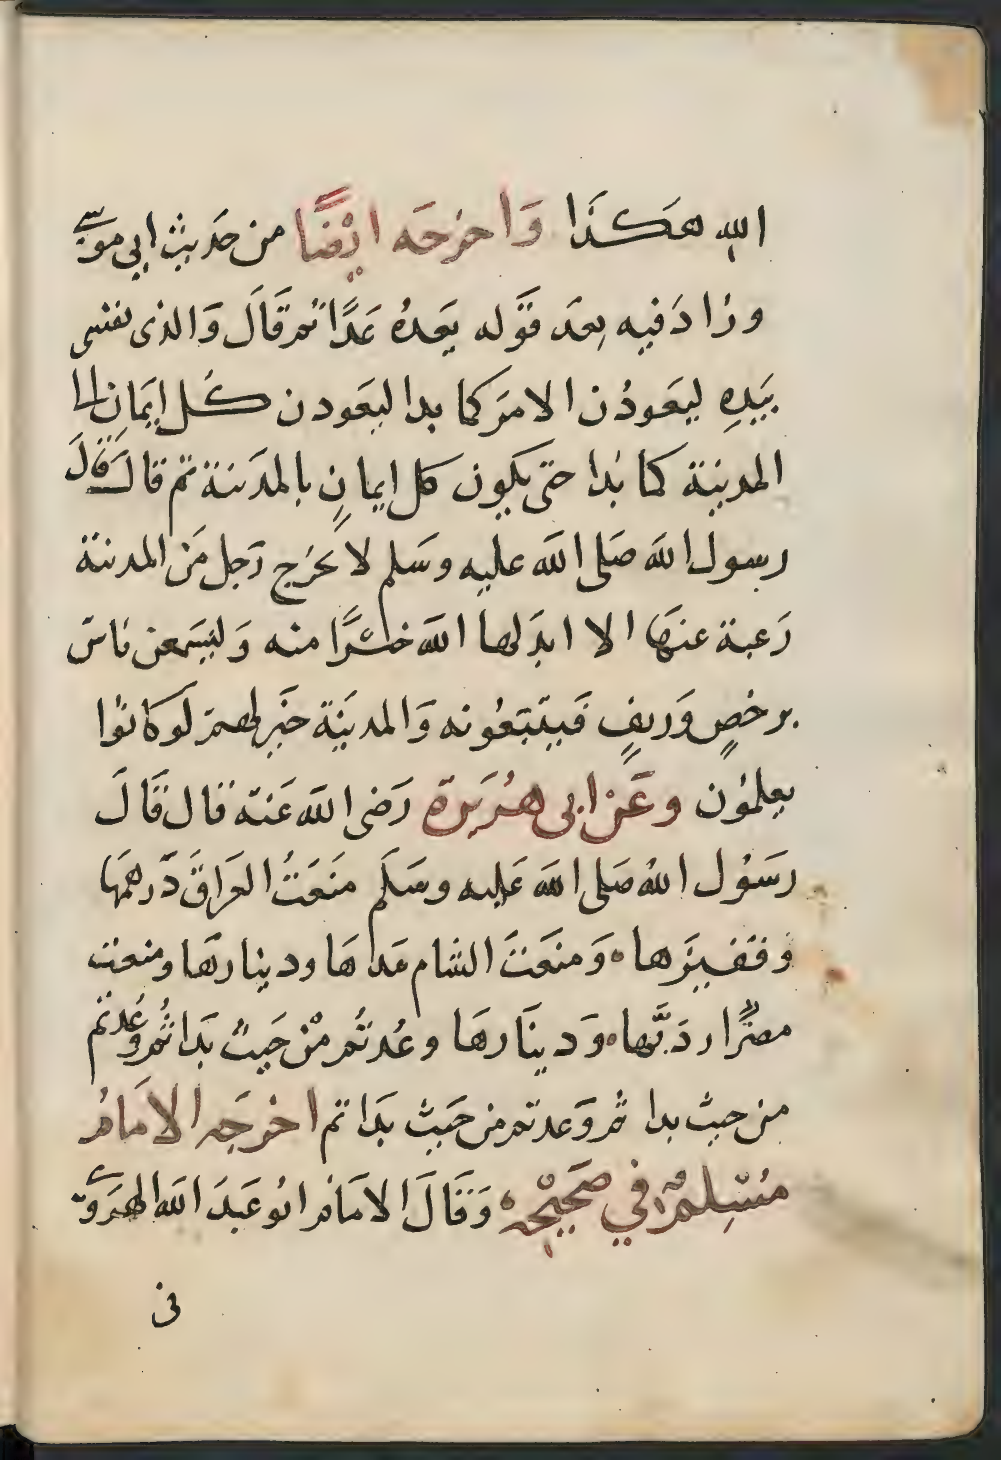 الله هكذا وَاخرجَه ايْضًا من حَديث ابي موسى
وزادَ فيه بعدَ قوَله يَعدهُ عَدًّا ثم قَالَ وَالذى نفسى
بيَدِهِ ليَعودُن الامرَ كما بدا ليعَودن كُل اِيمَانٍ الى
المدينة كما بَدا حتى يكون كل ايمانٍ بالمدَينة ثم قال قالَ
رسول اللهَ صَلى اللهَ عليه وسَلم لا يخَرج رَجل مَن المدينة
رَغبة عنهَا الا ابدَلها اللهَ خيرًا منه وَليسَمعن ناسَ
برخصٍ وَريفٍ فَيتبَعُونه وَالمديَنة خيَر لهم لَو كانوُا
يعلمُون وعَن ابى هُرَيرَة رَضى اللهَ عَنه قال قَالَ
رَسُول اللهُ صَلى اللهَ عَليه وسَلَم منَعَتُ العرَاقَ دَرهمَها
وقفيزَها وَمنعَتَ الشام مَداهَا ودينارهَا ومنعت
مصرُ اردَبّها وَدينَارهَا وعُدتُم مْن حَيثُ بَدَاتُم وَعُدتم
من حيث بداتم وَعدتم من حَيثَ بَداتم اخرجَه الامامُ
مُسْلِمٌ في صَحَيْحِه وَقَالَ الامَامُ ابُو عَبدَ اللهَ الهَرَوى
فى